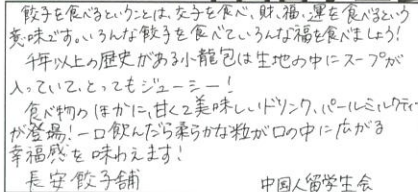 餃子を食べるということは、交子を食べ、財、福、運を食べるという
意味です。いろんな餃子を食べていろんな福を食べましょう!
千年以上の歴史がある小龍包は生地の中にスープが
入っていて、とってもジューシー!
食べ物のほかに、甘くて美味しいドリンク、パールミルクティー
が登場!一口飲んだら柔らかな粒が口の中に広がる
幸福感を味わえます!
長安餃子舗 中国人留学生会